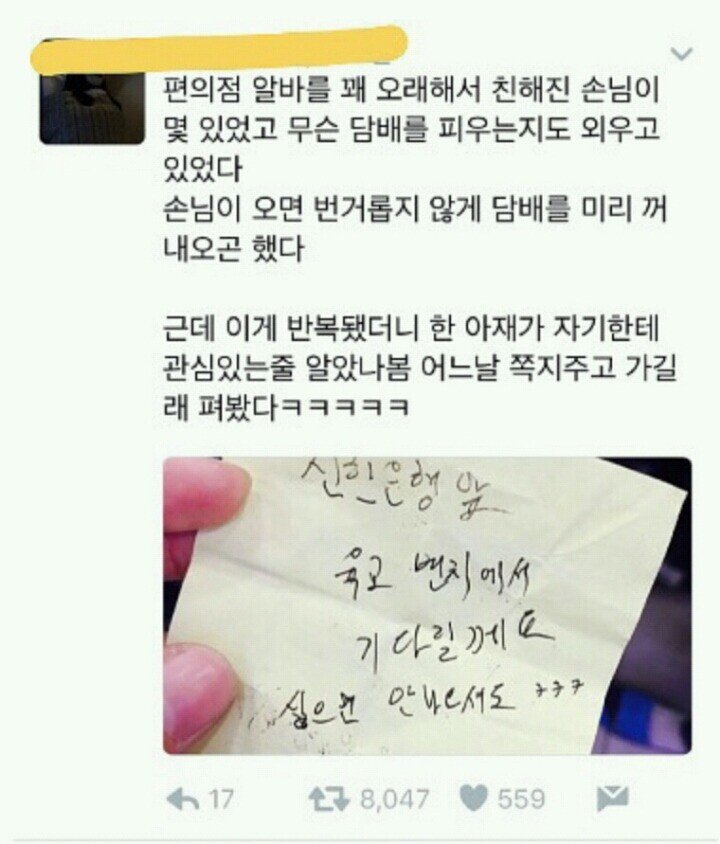 편의점 알바를 꽤 오래해서 친해진 손님이
몇 있었고 무슨 담배를 피우는지도 외우고
있었다
손님이 오면 번거롭지 않게 담배를 미리 꺼
내오곤 했다
근데 이게 반복됐더니 한 아재가 자기한테
관심있는줄 알았나봄 어느날 쪽지주고 가길
래 펴봤다ㅋㅋㅋㅋㅋ
신한은행 앞
육교 벤치에서
기다릴께요
싫으면 안나오셔도 ㅋㅋㅋ
17
8,047
559